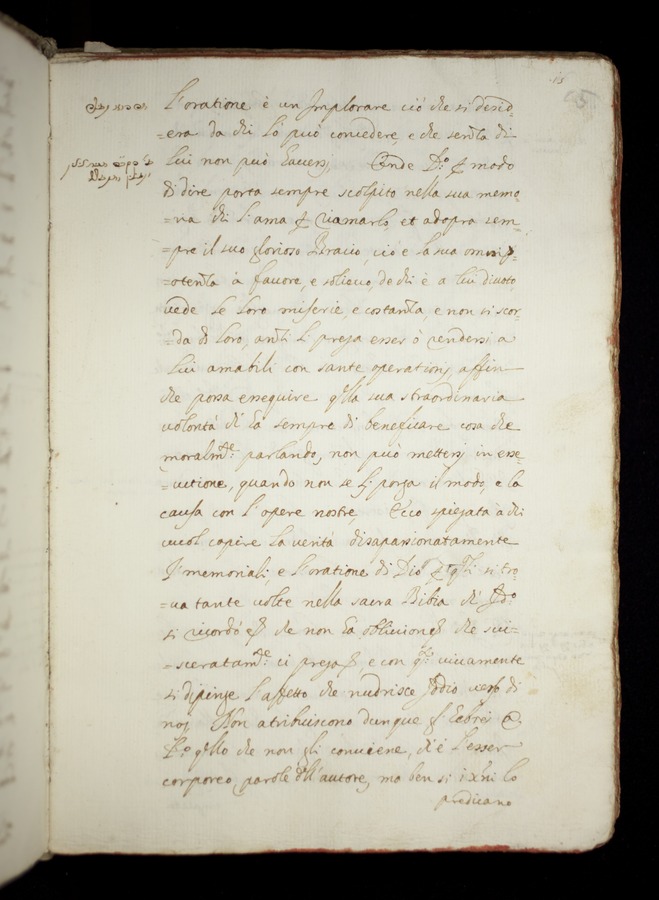 L'oratione è un Implorare ciò che si desid-
=era da chi lo può concedere, e che senza di
lui non può haversi, Onde D:o p modo
di dire porta sempre scolpito nella sua memo
=ria chi l'ama p riamarlo, et adopra sem-
=pre il suo glorioso Bracio, cio e la sua omnip
=otenza à favore, e solievo, de chi è a lui divoto
vede le loro miserie, e costanza, e non si scor-
=da di loro, anzi li prega esser ò rendersi a
lui amabili con sante operationj, affin
che possa esseguire q.lla sua straordinaria
volontà ch'ha sempre di beneficare cosa che
moralm.te: parlando, non può mettersi in esse
=cutione, quando non se li porga il modo, e la
causa con l'opere nostre, Ecco spiegata à chi
vuol capire la verità disapassionatamente
I memoriali, e l'oratione di Dio p q.li si tro-
=va tante volte nella sacra Bibia ch' Id.o
si ricordò che non ha oblivione che svi-
=sceratam.te ci prega e con q.
vivamente
si dipinge l'affetto che nudrisce Iddio verso di
noj Non atribuiscono dunque gl'Ebrei a
D:o q.llo che non gli conviene, ch'è l'esser
corporeo parole dell'autore, ma ben si i Xni lo
predicano